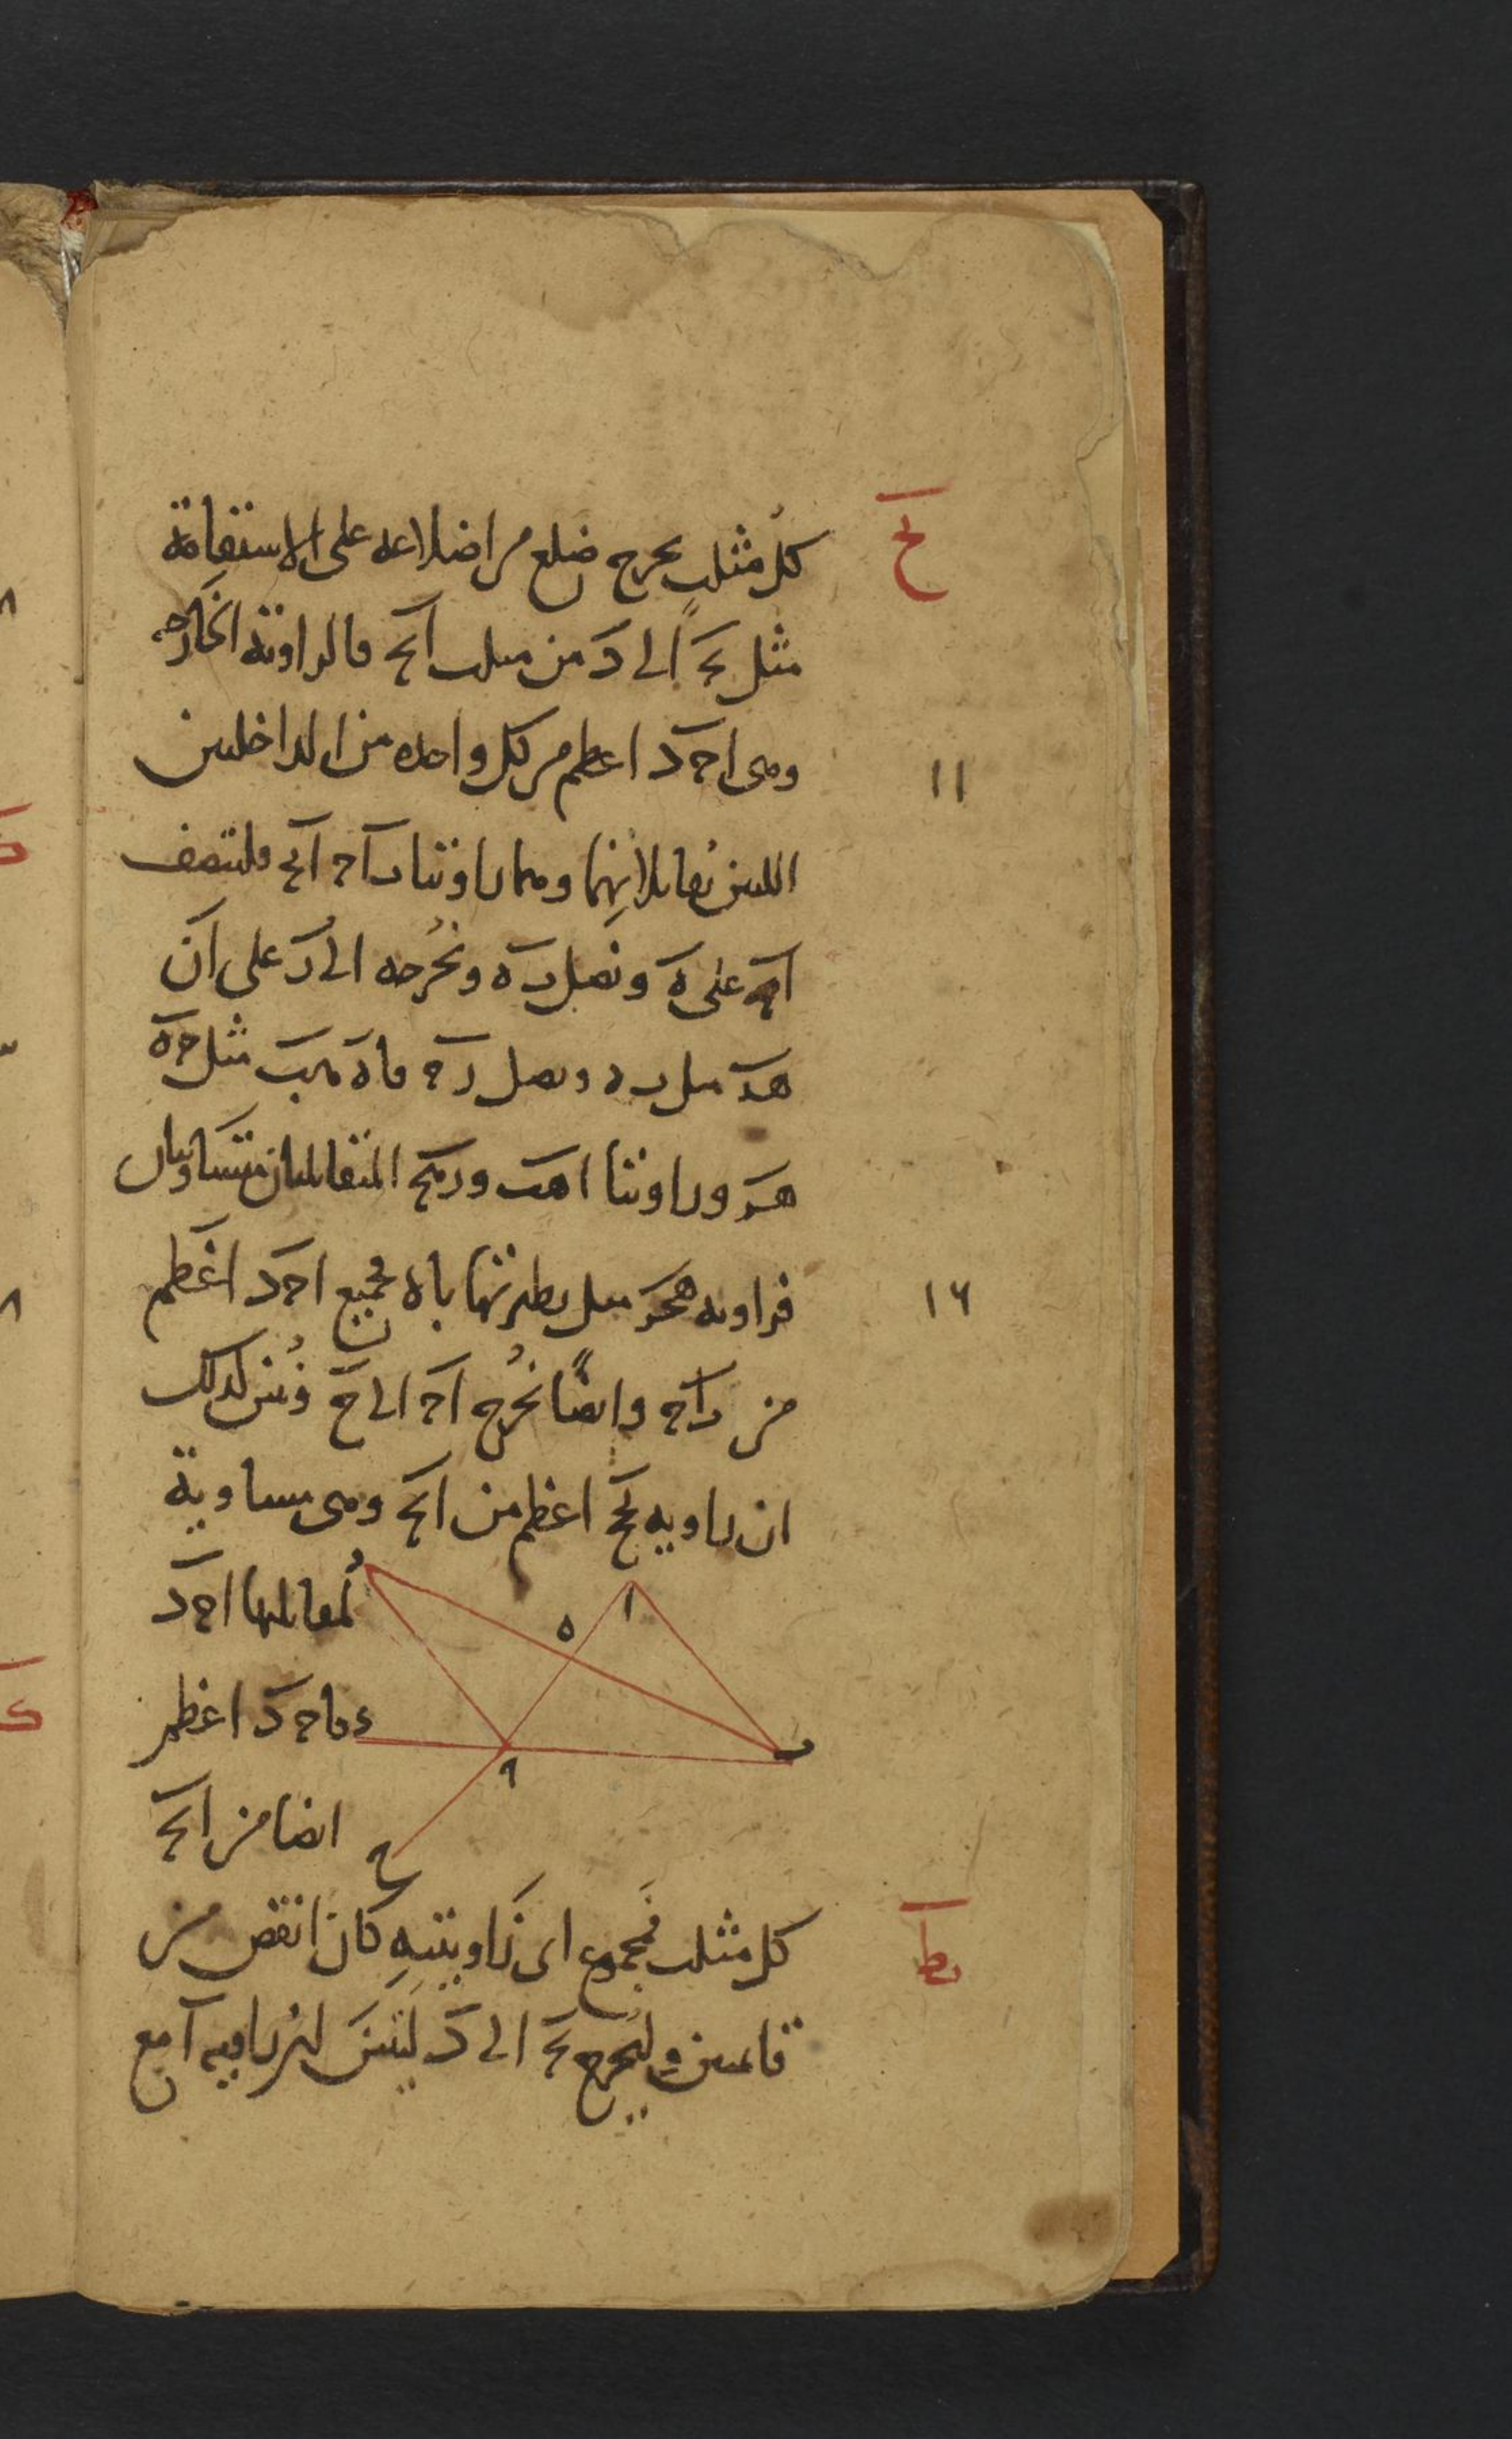 يح
كل مثلث يخرج ضلع من اضلاعه على الاستقامة
مثل بح الى د من مثلث ابح فالزاوية الخارجة
وهى احد اعظم من كل واحدة من الداخلتين
١١
اللتين تقابلانهما وهما زاويتا باح ابح فلننصف
اح على ه ونصل به ونخرجه الى ر على ان
هر مثل به ونصل رح فاه هب مثل حه
هر وزاويتا اهب ورهح المتقابلتان متساويتان
فزاوية هحر مثل نظيرتها باه فجميع احد اعظم
١٢
من باح وايضا نخرج اح الى ح ونبين كذلك
ان زاوية بحح اعظم من ابح وهى مساوية
لمقابلها احد
فاحد اعظم
ايضا من ابح
ر
ه
ا
ء
ح
ب
ح
يط
كل مثلث فمجموع اى زاويتيه كان انقص من
قائمتين وليخرج بح الى د ليتبين لنا زاوية ا مع